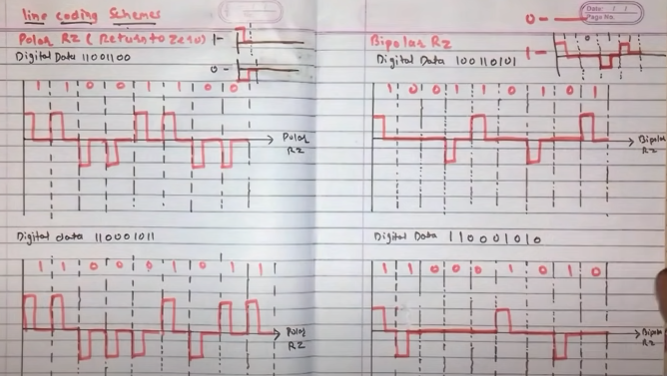 line coding Schemes
Polar RZ (Return to Zero) 1-
0-
Digital Data 11001100
1 1 0 0 1 1 0 0
Polar
RZ
Digital data 110001011
1 1 0 0 0 1 0 1 1
Polar
RZ
Date: / /
Page No.
0-
Bipolar RZ
1-
0
Digital Data 100110101
1 0 0 1 1 0 1 0 1
Bipolar
RZ
Digital Data 110001010
1 1 0 0 0 1 0 1 0
Bipolar
RZ